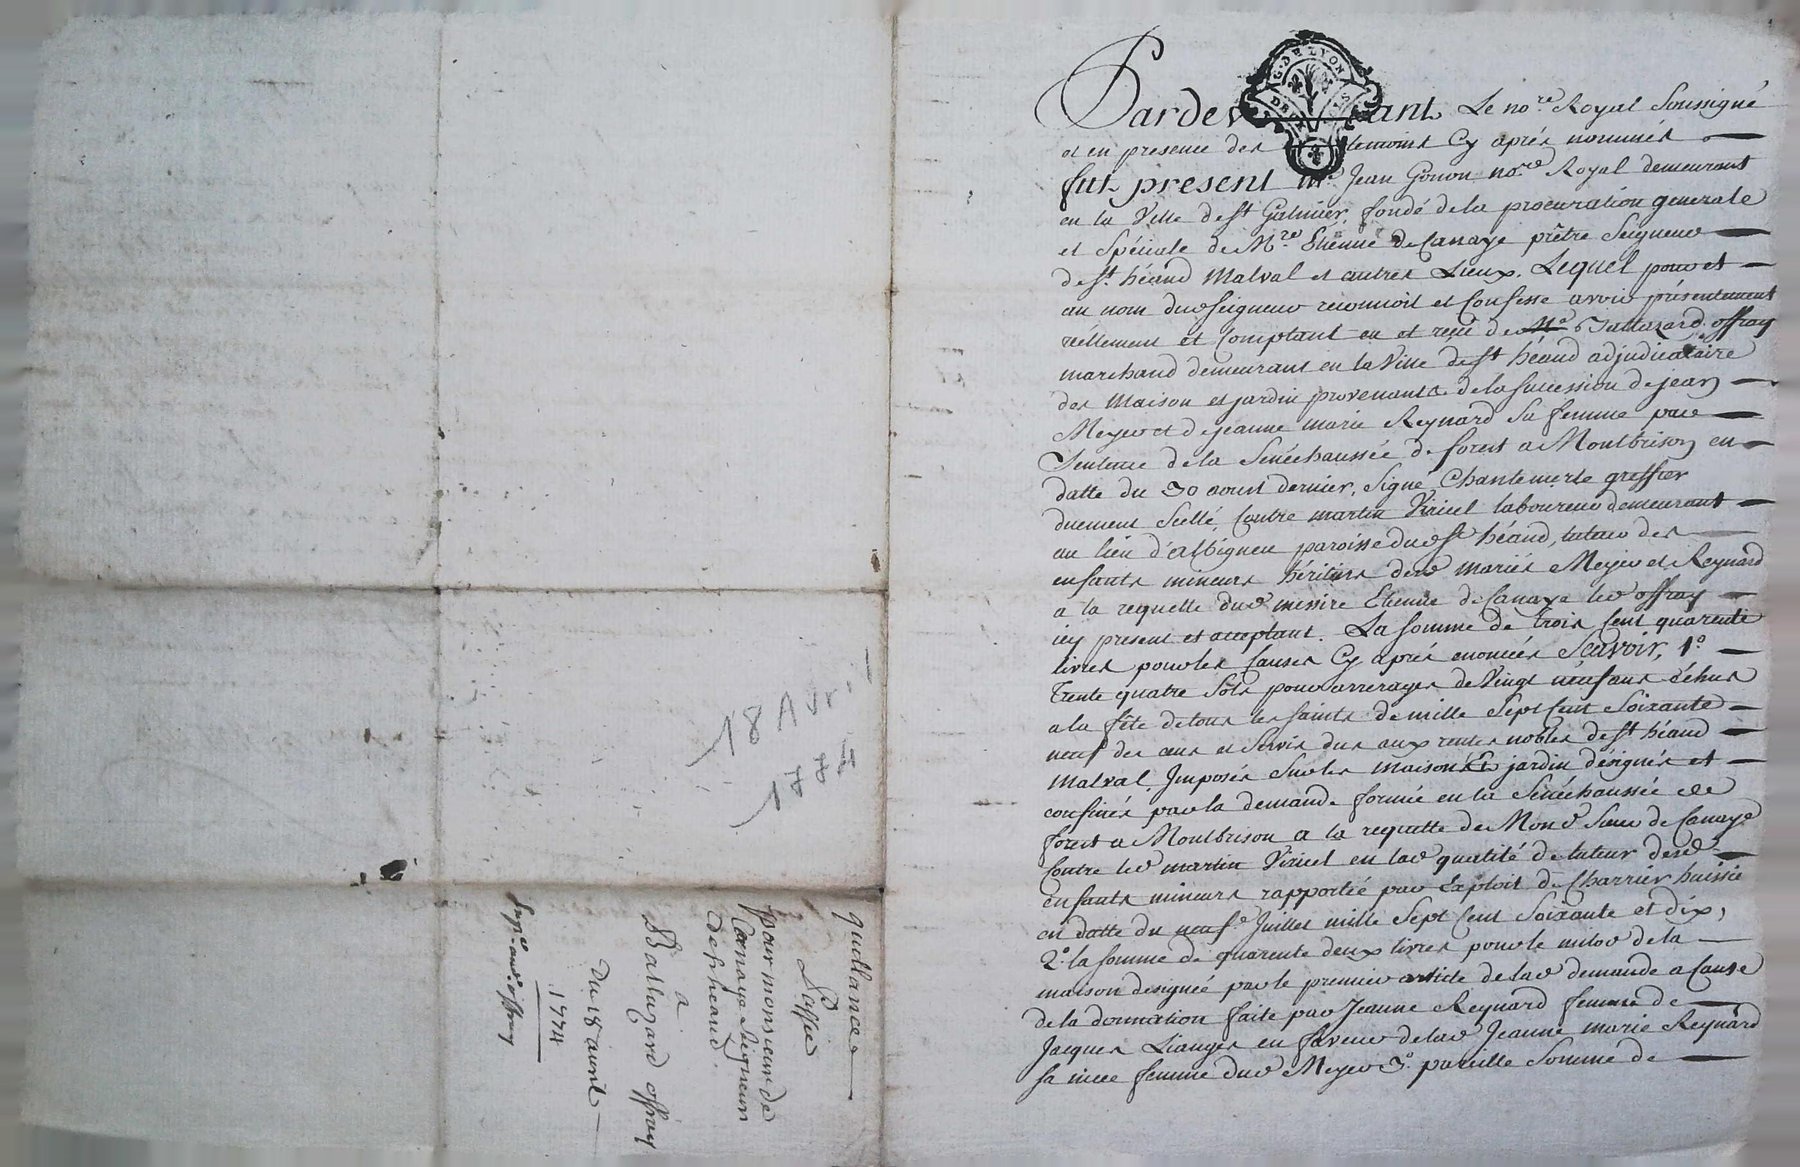 18 Avril
1774
quittances
Passée
par monsieur de
Canaye Seigneur
de st heand.
a
Baltazard offray
Du 18 avril
1774
G. DE LYON
Pardevant Le no.re Royal Soussigné
et en presence des temoins Cy aprés nommés
fut present M.e Jean Gonon no.re Royal demeurant
en la Ville de st Galmier, fondé de la procuration generale
et Spéciale de M.re Etienne de Canaye prêtre Seigneur
de st. héand Malval et autres Lieux. Lequel pour et
au nom dud Seigneur reconnoit et Confesse avoir présentement
réellement et Comptant eu et reçû de Baltazard offray
marchand demeurant en la Ville de st héand adjudicataire
des maison et jardin provenants de la succession de jean
Meyer et de jeanne marie Reynard Sa femme par
Sentence de la Sénéchaussée de forest a Montbrison en
datte du 30 aoust dernier, Signé Chantemerle greffier
duement Scellé, Contre martin Viricel laboureur demeurant
au lieu d'albigneu paroisse dud st héand, tuteur des
enfants mineurs héritiers desd mariés Meyer et Reynard
a la requette dud messire Etienne de Canaye led offray
icy present et acceptant. La somme de trois Cent quarente
livres pour les Causes Cy aprés enoncées Scavoir, 1.o
Trente quatre Sols pour arrerages de Vingt neuf ans échus
a la fête de tous les saints de mille Sept Cent Soixante
neuf des cens et Servis dus aux rentes nobles de st héand
Malval, Imposés Sur les maison Et jardin désignés et
confinés par la demande formée en la Sénéchaussée de
forest a Montbrison a la requette de Mond Sieur de Canaye
Contre led martin Viricel en lad qualité de tuteur desd
enfants mineurs rapportée par Exploit de Charrier huissier
en datte du neuf Juillet mille Sept Cent Soixante et dix,
2.o la somme de quarente deux livres pour le milod de la
maison designée par le premier article de lad demande a Cause
de la donnation faite par Jeanne Reynard femme de
Jacques Liange en faveur de lad Jeanne marie Reynard
Sa niece femme dud Meyer 3.o pareille Somme de